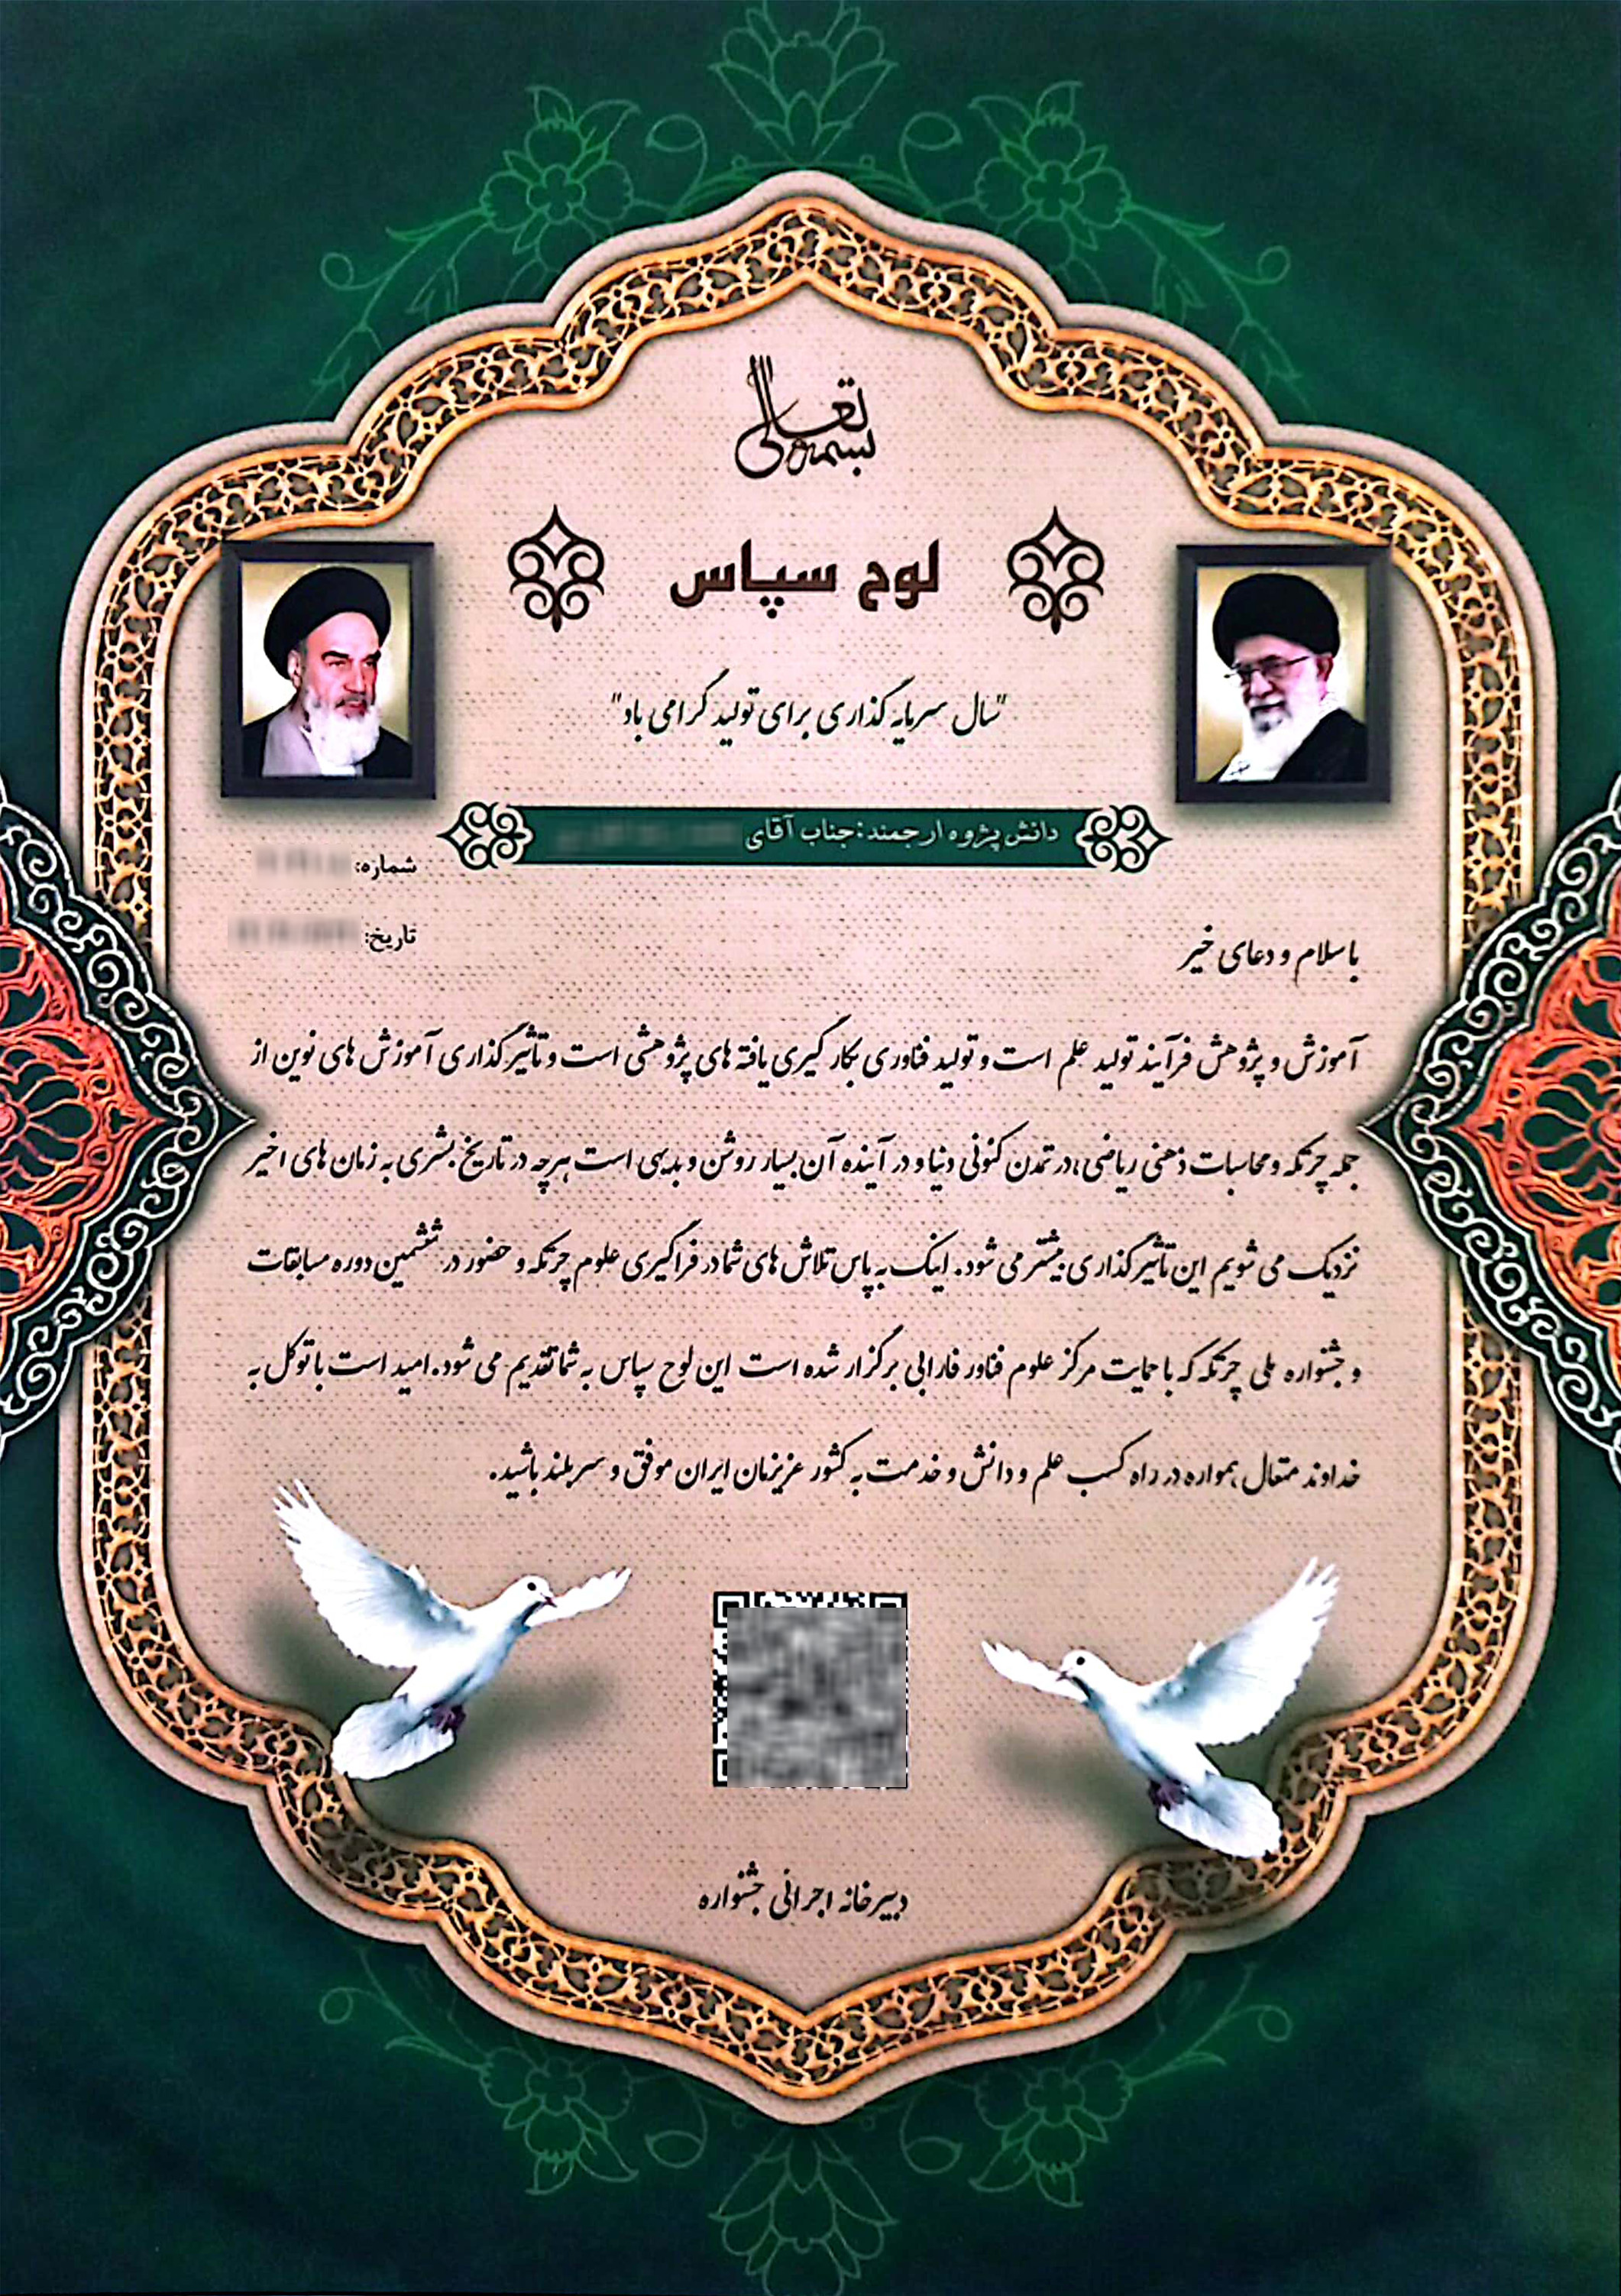 بسمه تعالی
لوح سپاس
"سال سرمایه گذاری برای تولید گرامی باد"
دانش پژوه ارجمند: جناب آقای
شماره:
تاریخ:
با سلام و دعای خیر
آموزش و پژوهش فرآیند تولید علم است و تولید فناوری بکارگیری یافته های پژوهشی است و تاثیرگذاری آموزش های نوین از
جمله چرتکه و محاسبات ذهنی ریاضی، در تمدن کنونی دنیا و در آینده آن بسیار روشن و بدیهی است هرچه در تاریخ بشری به زمان های اخیر
نزدیک می شویم این تاثیرگذاری بیشتر می شود. اینک به پاس تلاش های شما در فراگیری علوم چرتکه و حضور در ششمین دوره مسابقات
و جشنواره ملی چرتکه که با حمایت مرکز علوم فناور فارابی برگزار شده است این لوح سپاس به شما تقدیم می شود. امید است با توکل به
خداوند متعال همواره در راه کسب علم و دانش و خدمت به کشور عزیزمان ایران موفق و سربلند باشید.
دبیرخانه اجرائی جشنواره